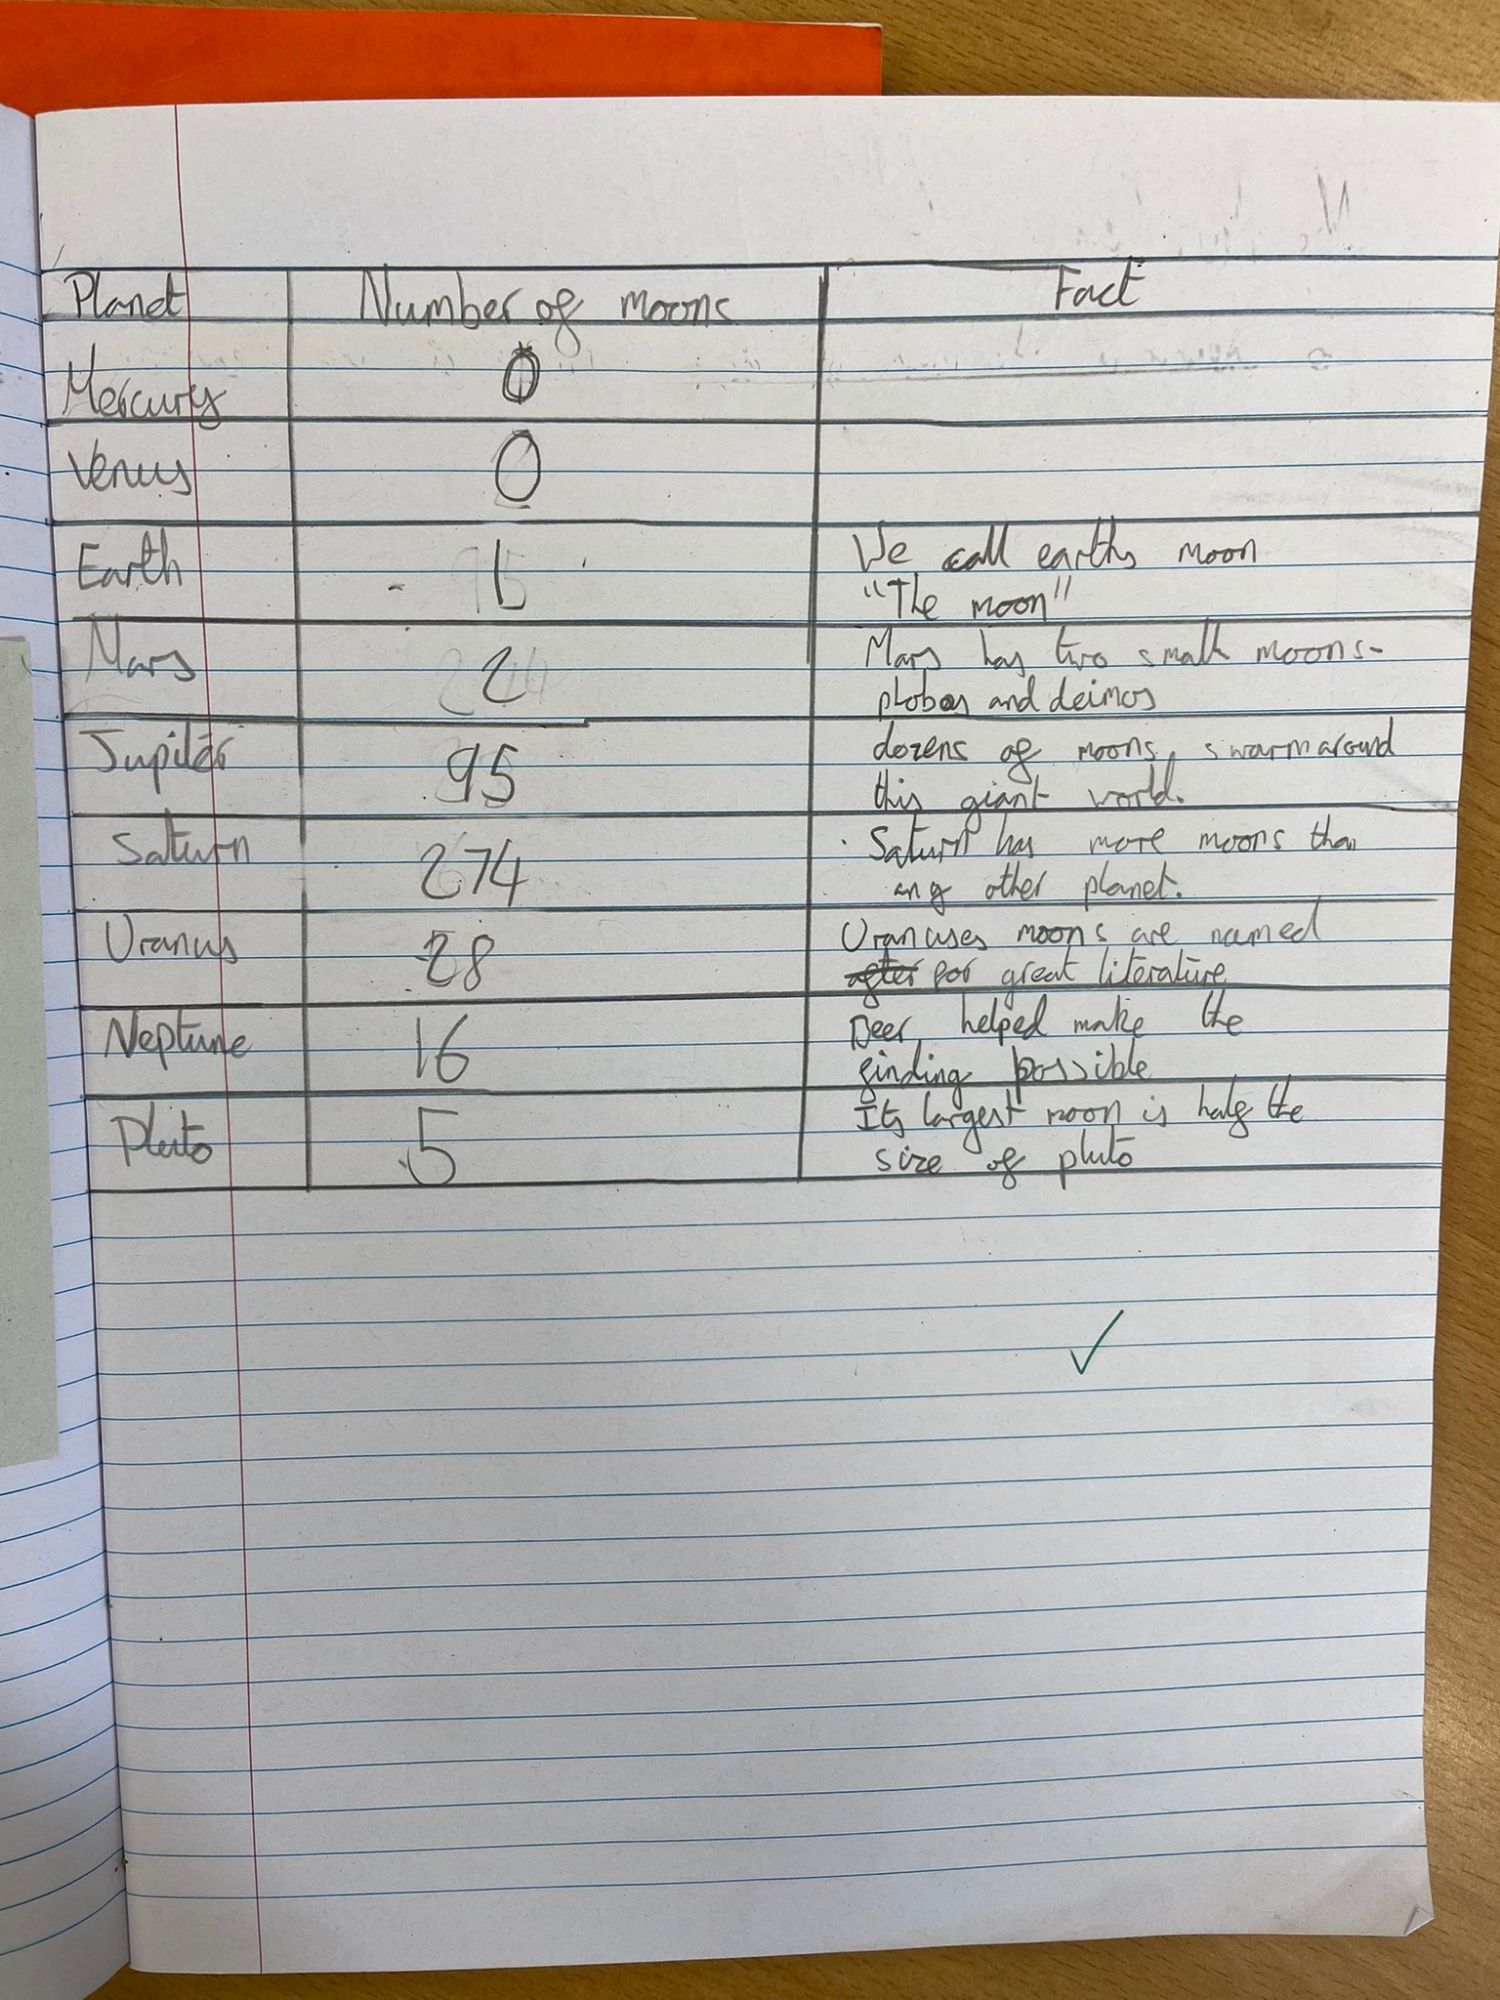 Planet Number of moons Fact
Mercury 0
Venus 0
Earth 1 We call earths moon
"The moon"
Mars 2 Mars has two small moons-
phobos and deimos
Jupiter 95 dozens of moons, swarm around
this giant world.
Saturn 274 Saturn has more moons than
any other planet.
Uranus 28 Uranuses moons are named
after for great literature
Neptune 16 Beer helped make the
finding possible
Pluto 5 Its largest moon is half the
size of pluto